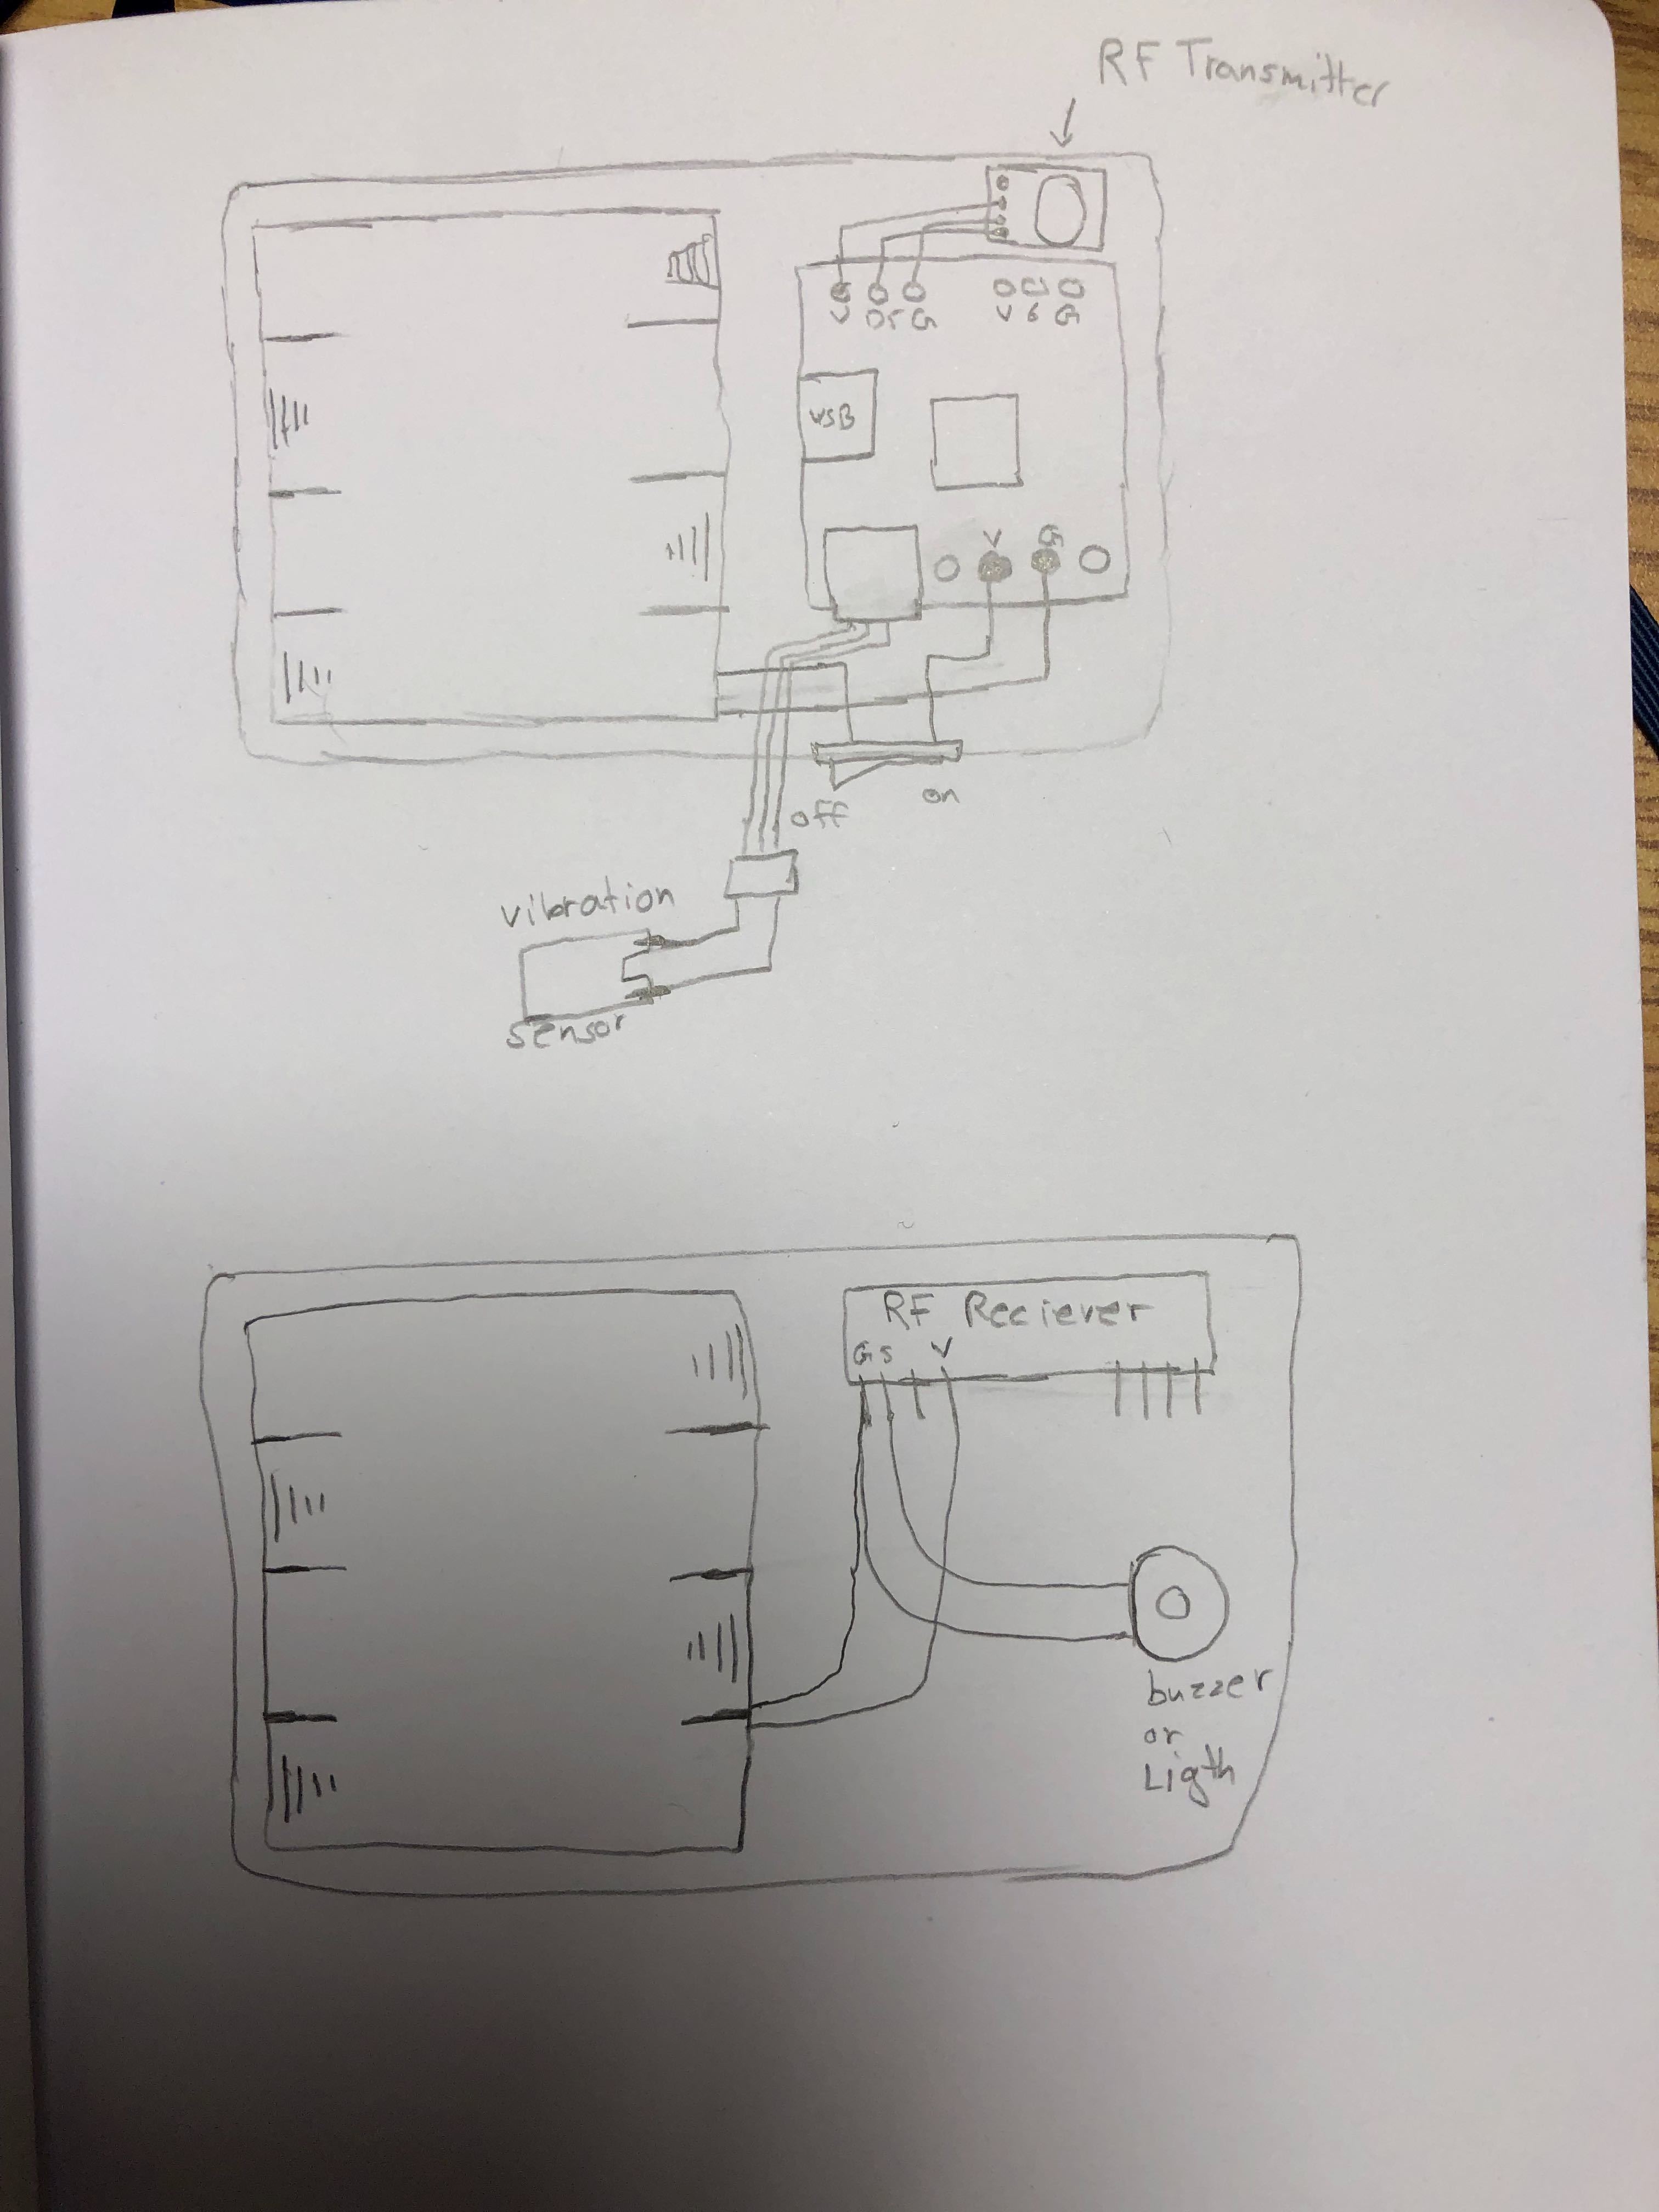 RF Transmitter
V D5 G V 6 G
USB
V G
off on
vibration
sensor
RF Reciever
G S V
buzzer
or
Ligth